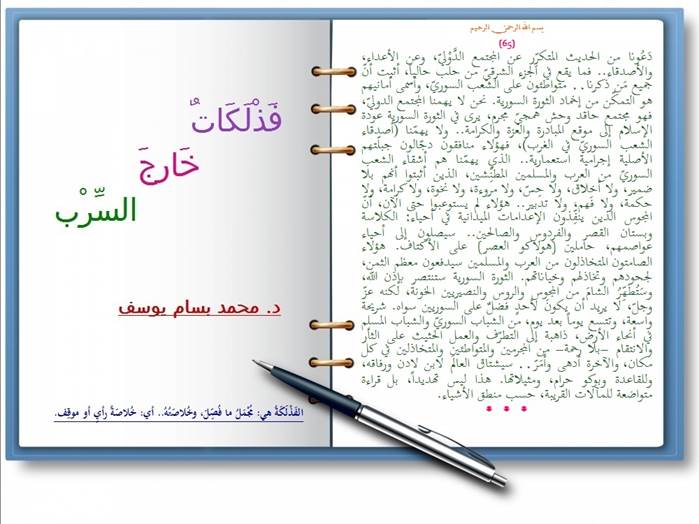 بسم الله الرحمن الرحيم
(65)
دَعُونا من الحديث المتكرّر عن المجتمع الدَّوْليّ، وعن الأعداء،
والأصدقاء.. فما يقع في الجزء الشرقيّ من حلب حالياً، أثبت أنّ
جميع مَن ذكرنا.. متواطئون على الشعب السوريّ، وأسمى أمانيهم
هو التمكّن من إخماد الثورة السورية. نحن لا يهمنا المجتمع الدوليّ،
فهو مجتمع حاقد وحش همجيّ مجرم، يرى في الثورة السورية عودة
الإسلام إلى موقع المبادرة والعزة والكرامة.. ولا يهمّنا (أصدقاء
الشعب السوريّ في الغرب)، فهؤلاء منافقون دجّالون جبلّتهم
الأصلية إجرامية استعمارية.. الذي يهمّنا هم أشقّاء الشعب
السوريّ من العرب والمسلمين المطبّشين، الذين أثبتوا أنهم بلا
ضمير، ولا أخلاق، ولا حِسّ، ولا مروءة، ولا نخوة، ولا كرامة، ولا
حكمة، ولا فهم، ولا تدبير.. هؤلاء لم يستوعبوا حتى الآن، أنّ
المجوس الذين ينفِّذون الإعدامات الميدانية في أحياء: الكلاسة
وبستان القصر والفردوس والصالحين.. سيصلون إلى أحياء
عواصمهم، حاملين (هولاكو العصر) على الأكتاف. هؤلاء
الصامتون المتخاذلون من العرب والمسلمين سيدفعون معظم الثمن،
لجحودهم وتخاذلهم وخياناتهم. الثورة السورية ستنتصر بإذن الله،
وستُطهَّرُ الشامُ من المجوس والروس والنصيريين الخونة، لكنه عزّ
وجلّ، لا يريد أن يكونَ لأحدٍ فضلٌ على السوريين سواه. شريحة
واسعة، وتتسع يوماً بعد يوم، من الشباب السوريّ والشباب المسلم
في أنحاء الأرض، ذاهبة إلى التطرّف والعمل الحثيث على الثأر
والانتقام -بلا رحمة- من المجرمين والمتواطئين والمتخاذلين في كل
مكان، والآخرة أدهى وأمَرّ.. سيشتاق العالم لابن لادن ورفاقه،
وللقاعدة وبوكو حرام، ومثيلاتها. هذا ليس تهديداً، بل قراءة
متواضعة للمآلات القريبة، حسب منطق الأشياء.
* * *
فَذْلَكَاتٌ
خَارِجَ
السِّرْب
د. محمد بسام يوسف
الفَذْلَكَةُ هي: مُجْمَلُ ما فُصِّلَ، وخُلاصَتُهُ.. أي: خُلاصَةُ رأيٍ أو موقِف.